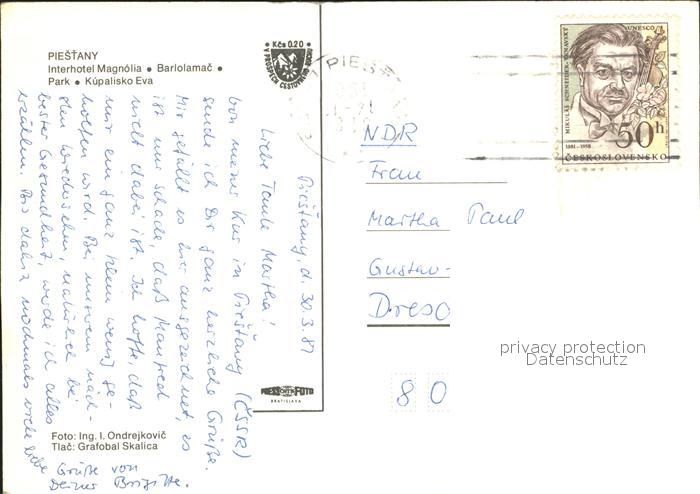 PIEŠŤANY
Interhotel Magnólia • Bartolamač •
Park • Kúpalisko Eva
Kčs 0.20
V PROSPECH CESTOVNÉHO RUCHU
Piešťany, d. 30.3.87
Liebe Tante Martha!
Von meiner Kur in Piešťany (ČSSR)
sende ich Dir ganz herzliche Grüße.
Mir gefällt es hier ausgezeichnet, es
ist nur schade, daß Manfred
nicht dabei ist. Ich hoffe, daß
mir ein ganz klein wenig ge-
holfen wird. Bei unserem näch-
sten Wiedersehen, natürlich bei
bester Gesundheit, werde ich alles
erzählen. Bis dahin nochmals viele liebe
Grüße von
Deiner Brigitte.
Foto: Ing. I. Ondrejkovič
Tlač: Grafobal Skalica
PRESSFOTO
BRATISLAVA
PIEŠ
MIKULÁŠ SCHNEIDER TRNAVSKÝ
UNESCO
1881-1958
50h
ČESKOSLOVENSKO
NDR
Frau
Martha Paul
Gustav-
Dresd
80
privacy protection
Datenschutz